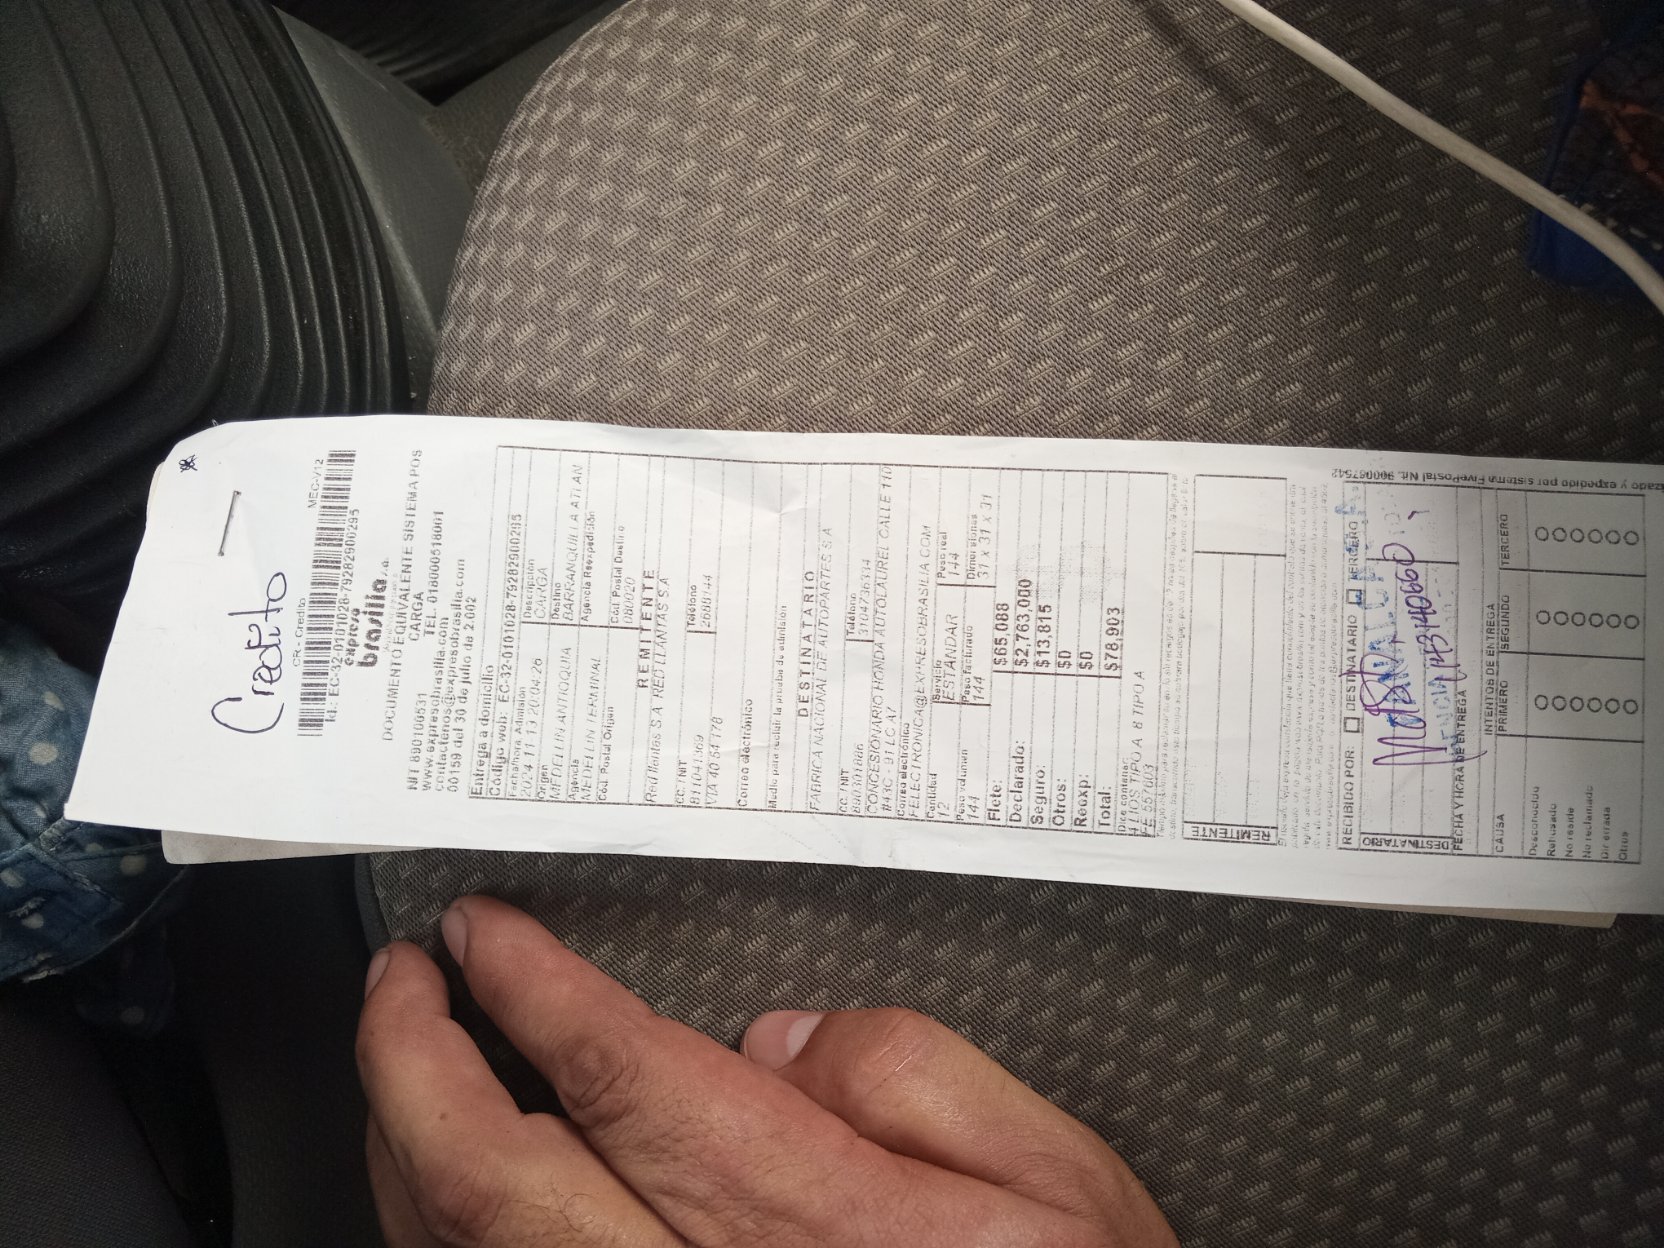 Credito
CR - Credito MEC-V12
Id.: EC-32-0101028-79282900295
expreso
brasilia s.a.
DOCUMENTO EQUIVALENTE SISTEMA POS
CARGA
NIT 890100531 TEL. 018000518001
www.expresobrasilia.com
contactenos@expresobrasilia.com
00159 del 30 de julio de 2.002
Entrega a domicilio
Código web: EC-32-0101028-79282900295
Fecha/hora Admisión Descripción
2024 11 13 20:04:26 CARGA
Origen Destino
MEDELLIN ANTIOQUIA BARRANQUILLA ATLAN
Agencia Agencia Reexpedición
MEDELLIN TERMINAL
Cód. Postal Origen Cód. Postal Destino
080020
REMITENTE
Redllantas S.A REDLLANTAS S.A
CC / NIT Teléfono
811041369 2688144
VIA 40 54 178
Correo electrónico
Medio para recibir la prueba de admisión
DESTINATARIO
FABRICA NACIONAL DE AUTOPARTES S.A
CC. / NIT Teléfono
3104736334
CONCESIONARIO HONDA AUTOLAUREL CALLE 110
#43C - 91 LC A7
Correo electrónico
FELECTRONICA@EXPRESOBRASILIA.COM
Cantidad Servicio Peso real
12 ESTANDAR 144
Peso volumen Peso Facturado Dimensiones
144 144 31 x 31 x 31
Flete: $65,088
Declarado: $2,763,000
Seguro: $13,815
Otros: $0
Reexp: $0
Total: $78,903
Dice contener
4 LIOS TIPO A 8 TIPO A
FE 551603
REMITENTE
RECIBIDO POR DESTINATARIO TERCERO
DESTINATARIO
FECHA Y HORA DE ENTREGA
INTENTOS DE ENTREGA
CAUSA PRIMERO SEGUNDO TERCERO
Desconocido
Rehusado
No reside
No reclamado
Dir errada
Otros
expedido por sistema FivePostal Nit. 900087542